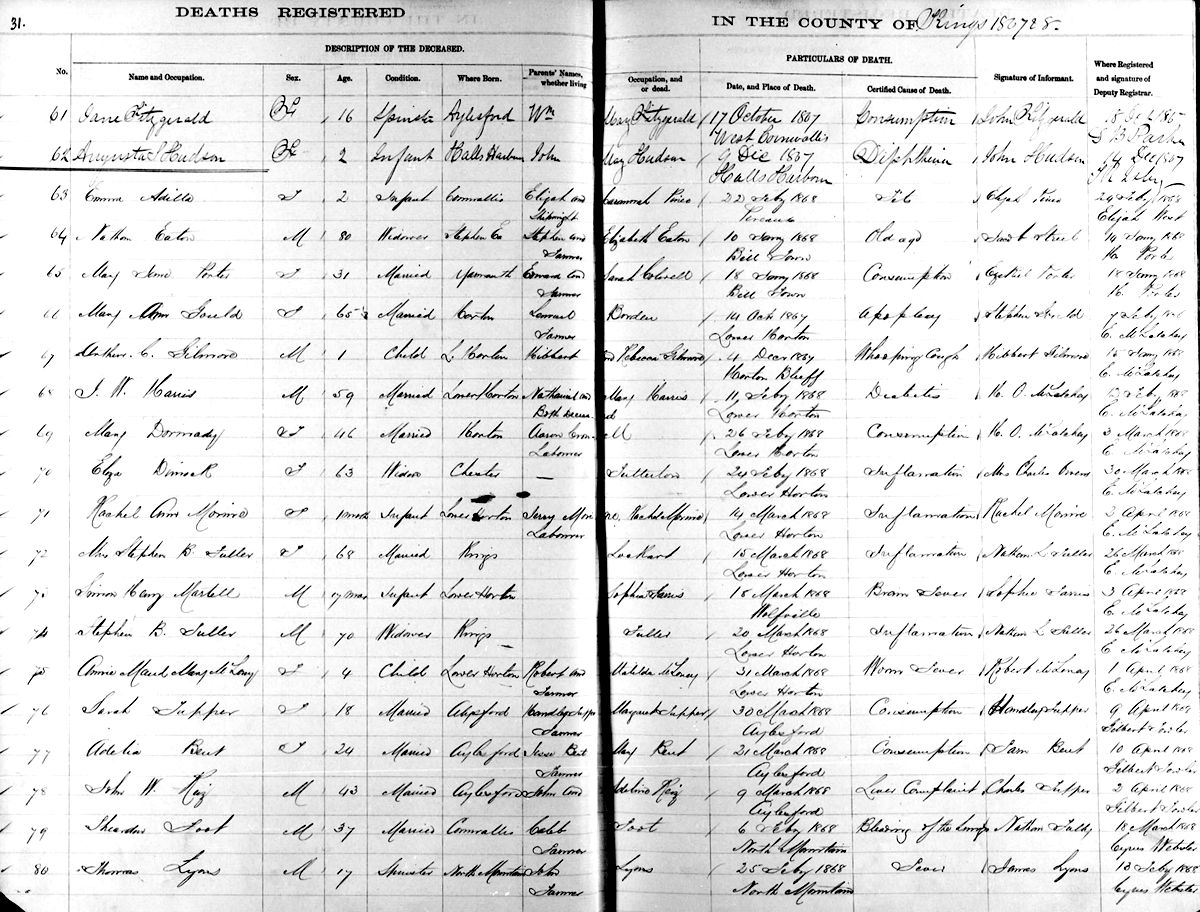 31.
DEATHS REGISTERED IN THE COUNTY OF Kings 1867 & 8.
DESCRIPTION OF THE DECEASED. PARTICULARS OF DEATH.
No. Name and Occupation. Sex. Age. Condition. Where Born. Parents' Names, whether living Occupation, and or dead. Date, and Place of Death. Certified Cause of Death. Signature of Informant. Where Registered and signature of Deputy Registrar.
61 Jane Fitzgerald F 16 Spinster Aylesford Wm Mary Fitzgerald 17 October 1867 Consumption John Fitzgerald
West Cornwallis
62 Augusta Hudson F 2 Infant Halls Harbour John May Hudson 9 Dec 1867 Diphtheria John Hudson 14 Dec 1867
Halls Harbour
63 Emma Adilla F 2 Infant Cornwallis Elijah and Pineo 22 Feby 1868 Fit Elijah Pineo 24 Feby 1868
Shipwright Elijah West
64 Nathan Eaton M 80 Widower Stephen Ea Stephen and Elizabeth Eaton 10 Jany 1868 Old age 14 Jany 1868
Farmer Bill Town
65 Mary Jane Porter F 31 Married Yarmouth Edward and Sarah Colwell 18 Jany 1868 Consumption Ezekiel Porter 18 Jany 1868
Farmer Bill Town
66 Mary Ann Gould F 65 Married Horton Lemuel Borden 14 Oct 1867 Apoplexy Stephen Gould
Farmer Lower Horton E. McLatchey
67 Arthur C. Gilmore M 1 Child L. Horton Hibbert and Rebecca Gilmore 4 Dec 1867 Whooping Cough Hibbert Gilmore 15 Jany 1868
Horton Bluff E. McLatchey
68 J. W. Harris M 59 Married Lower Horton Nathaniel and Mary Harris 11 Feby 1868 Diabetis H. O. McLatchey Feby 1868
Both deceased Lower Horton E. McLatchey
69 Mary Dormady F 46 Married Horton Aaron 26 Feby 1868 Consumption H. O. McLatchey 3 March 1868
Laborer Lower Horton E. McLatchey
70 Eliza Dimock F 63 Widow Chester — Fullerton 24 Feby 1868 Inflamation Mrs Charles 30 March 1868
Lower Horton E. McLatchey
71 Rachel Ann Morine F 1 month Infant Lower Horton Jerry Morine, Rachel Morine 14 March 1868 Inflamation Rachel Morine 2 April 1868
Laborer Lower Horton E. McLatchey
72 Mrs Stephen B. Fuller F 68 Married Kings Lockhart 15 March 1868 Inflamation Nathan L. Fuller 26 March 1868
Lower Horton E. McLatchey
73 Simon Henry Martell M 17 mos Infant Lower Horton Sophia 18 March 1868 Brain Fever Sophia 3 April 1868
Wolfville E. McLatchey
74 Stephen B. Fuller M 70 Widower Kings — Fuller 20 March 1868 Inflamation Nathan L Fuller 26 March 1868
Lower Horton E. McLatchey
75 Annie Maud Mary F 4 Child Lower Horton Robert and Matilda 31 March 1868 Worm Fever Robert 1 April 1868
Farmer Lower Horton E. McLatchey
76 Sarah Tupper F 18 Married Aylesford Handley Tupper Margaret Tupper 30 March 1868 Consumption Handley Tupper 9 April 1868
Farmer Aylesford Gilbert Fowler
77 Adelia Bent F 24 Married Aylesford Jesse Bent Mary Bent 21 March 1868 Consumption Sam Bent 10 April 1868
Farmer Aylesford Gilbert Fowler
78 John W. M 43 Married Aylesford John and Adeline 9 March 1868 Liver Complaint Charles Tupper 2 April 1868
Farmer Aylesford Gilbert Fowler
79 Sheardon Foot M 37 Married Cornwallis Caleb Foot 6 Feby 1868 Bleeding of the lungs Nathan 18 March 1868
Farmer North Mountain Cyrus Webster
80 Thomas Lyons M 17 North Mountain John Lyons 25 Feby 1868 Fever James Lyons 13 Feby 1868
Farmer North Mountain Cyrus Webster